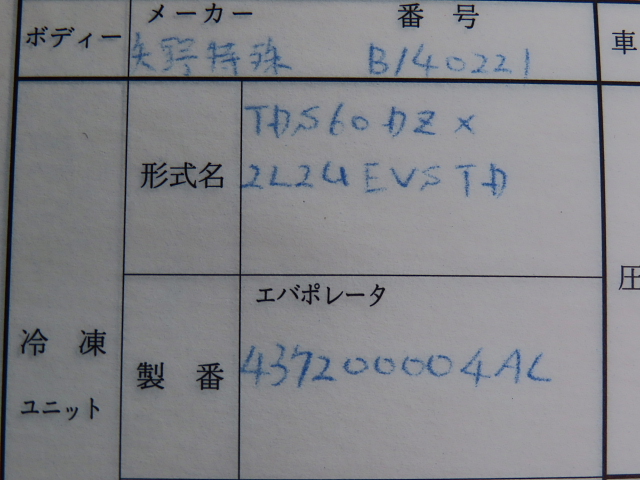 メーカー 番号
ボディー 矢野特殊 B140221 車
TDS60DZ×
形式名 2L24EVSTD
エバポレータ 圧
冷凍
ユニット 製番 437200004AL